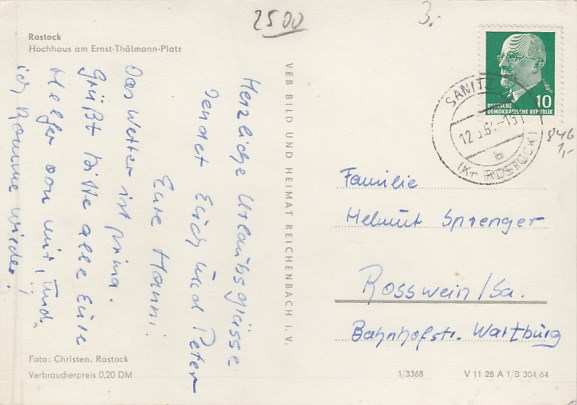 2500
3.-
Rostock
Hochhaus am Ernst-Thälmann-Platz
Herzliche Urlaubsgrüsse
sendet Euch und Peter
Eure Hanni.
Das Wetter ist prima.
Grüßt bitte alle Eure
Helfer von mir, und
ich komme wieder!
VEB BILD UND HEIMAT REICHENBACH I. V.
DEUTSCHE
DEMOKRATISCHE REPUBLIK
10
SANITZ
12.
b
(Kr. ROSTOCK)
846
1,-
Familie
Helmut Sprenger
Rosswein/Sa.
Bahnhofstr. Wartburg
Foto: Christen, Rostock
Verbraucherpreis 0,20 DM
1/3368
V 11 28 A 1/B 304/64